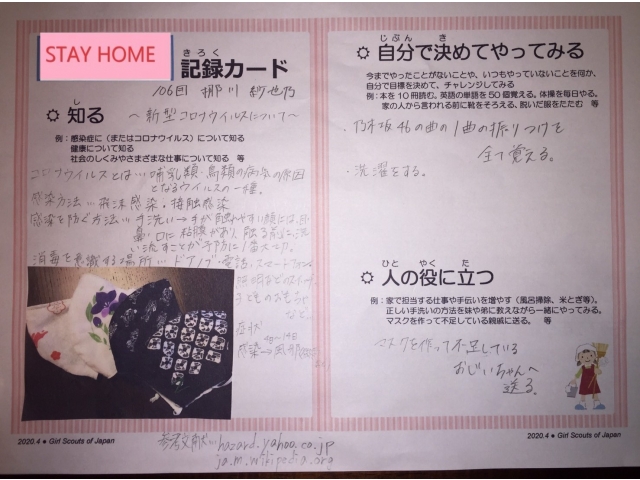 STAY HOME
きろく
記録カード
106団
し
知る
～新型コロナウイルスについて～
例：感染症に（またはコロナウイルス）について知る
健康について知る
社会のしくみやさまざまな仕事について知る 等
コロナウイルスとは…哺乳類・鳥類の病気の原因
となるウイルスの一種。
感染方法…飛沫感染・接触感染
感染を防ぐ方法…手洗い→手が触れやすい顔には、目・
鼻・口に粘膜があり、触る前に洗
い流すことが予防に1番
消毒を意識する場所…ドアノブ・電話
子どものおもちゃ
など。
症状
感染→
参考文献…hazard.yahoo.co.jp
ja.m.wikipedia.org
2020.4 ● Girl Scouts of Japan
じぶん き
自分で決めてやってみる
今までやったことがないことや、いつもやっていないことを何か、
自分で目標を決めて、チャレンジしてみる
例：本を10冊読む。英語の単語を50個覚える。体操を毎日やる。
家の人から言われる前に靴をそろえる、脱いだ服をたたむ 等
・乃木坂46の曲の1曲の振りつけを
全て覚える。
・洗濯をする。
ひと やく た
人の役に立つ
例：家で担当する仕事や手伝いを増やす（風呂掃除、米とぎ等）。
正しい手洗いの方法を妹や弟に教えながら一緒にやってみる。
マスクを作って不足している親戚に送る。 等
マスクを作って不足している
おじいちゃんへ
送る。
2020.4 ● Girl Scouts of Japan